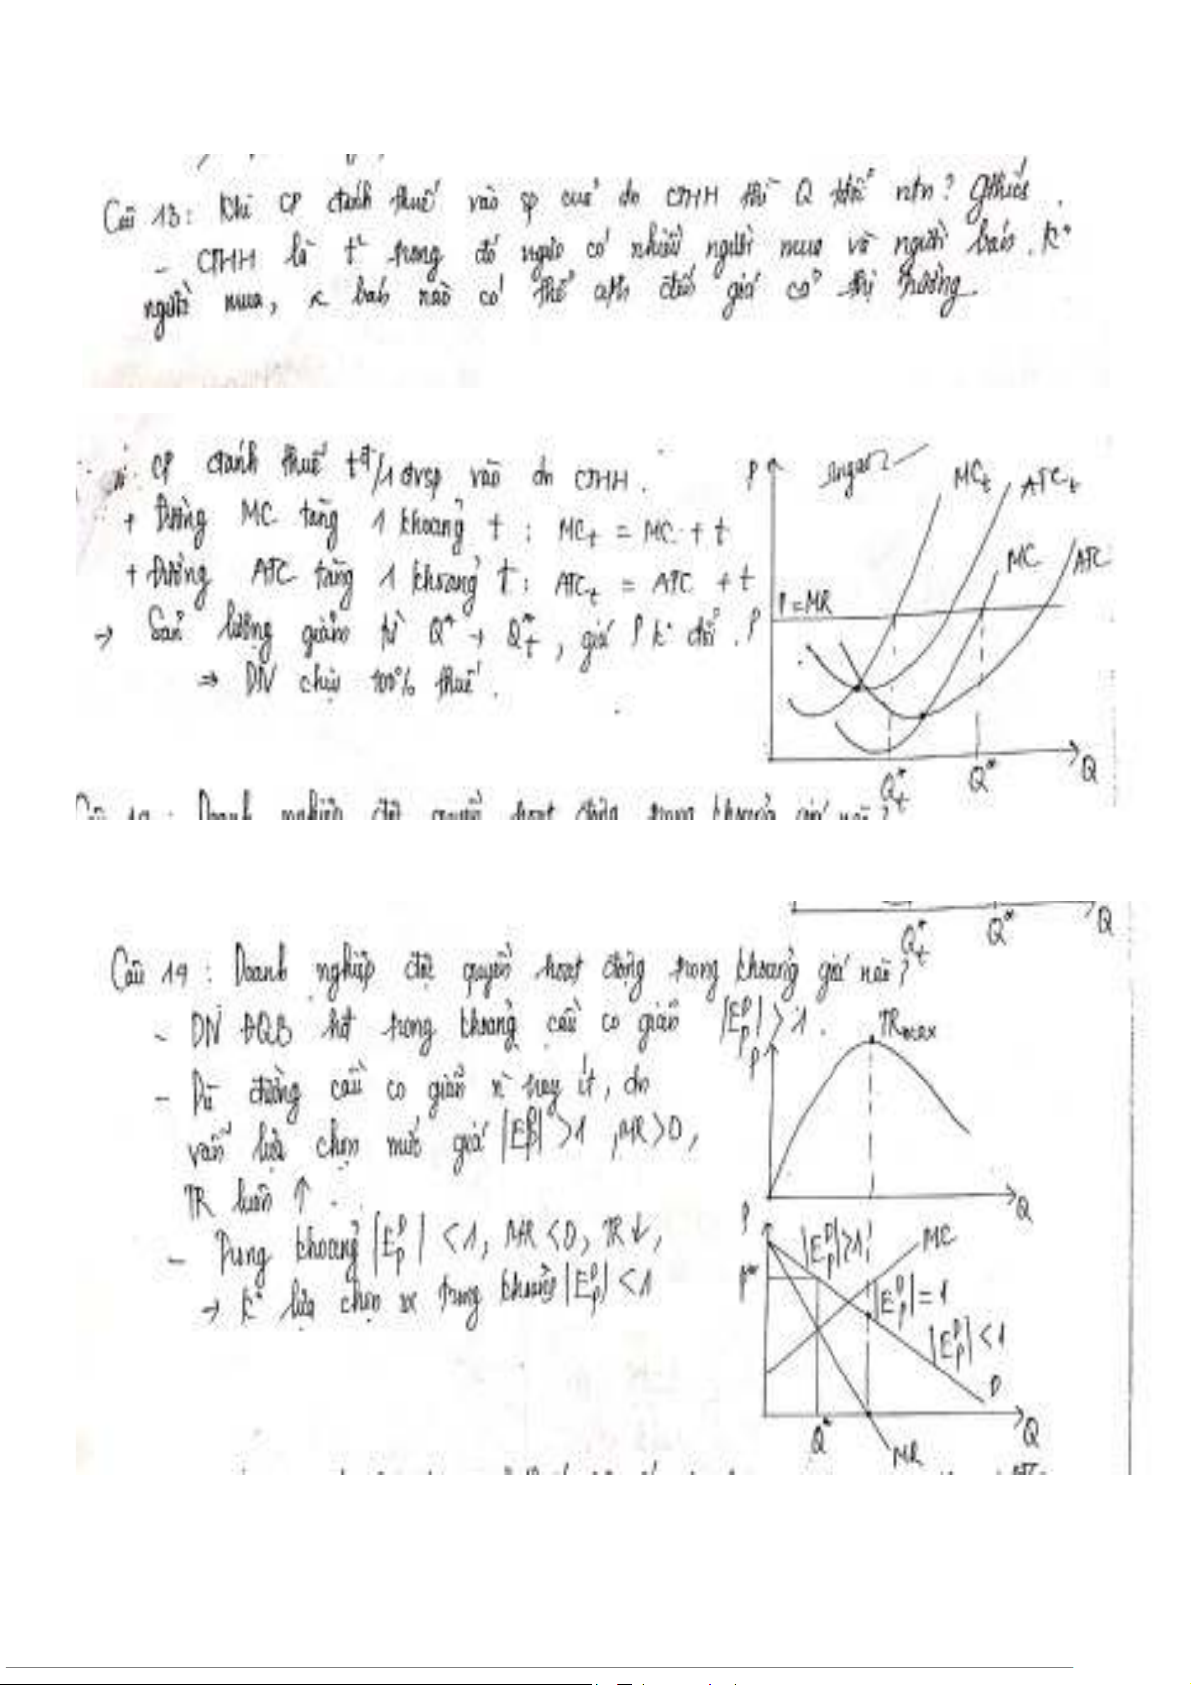 Câu 13: Khi CP đánh thuế vào sp của dn CTHH thì Q thế ntn? Gthích.
- CTHH là tt trong đó ngta có nhiều người mua và người bán. K°
người mua, n bán nào có thể ảnh đến giá cả thị trường
CP đánh thuế tđ/1 đvsp vào dn CTHH.
+ Đường MC tăng 1 khoảng t: MCt = MC + t
+ Đường ATC tăng 1 khoảng t: ATCt = ATC + t
→ Sản lượng giảm từ Q* → Q*t, giá P k° đổi.
⇒ DN chịu 100% thuế.
P
ngắn
MCt
ATCt
MC
ATC
P = MR
P
Q*t
Q*
Q
: Doanh nghiệp độc quyền hoạt động trong khoảng giá nào?
Q*t
Q*
Q
Câu 19: Doanh nghiệp độc quyền hoạt động trong khoảng giá nào?
- DN ĐQB hđ trong khoảng cầu co giãn |EDP| > 1.
- Dù đường cầu co giãn n` hay ít, dn
vẫn lựa chọn mức giá |EPD| > 1, MR > 0,
TR luôn ↑.
- Trong khoảng |EDP| < 1, MR < 0, TR ↓,
→ K° lựa chọn sx trong khoảng |EDP| < 1
P
TRmax
Q
P
|EDP| > 1
MC
P*
|EDP| = 1
|EDP| < 1
D
Q*
MR
Q